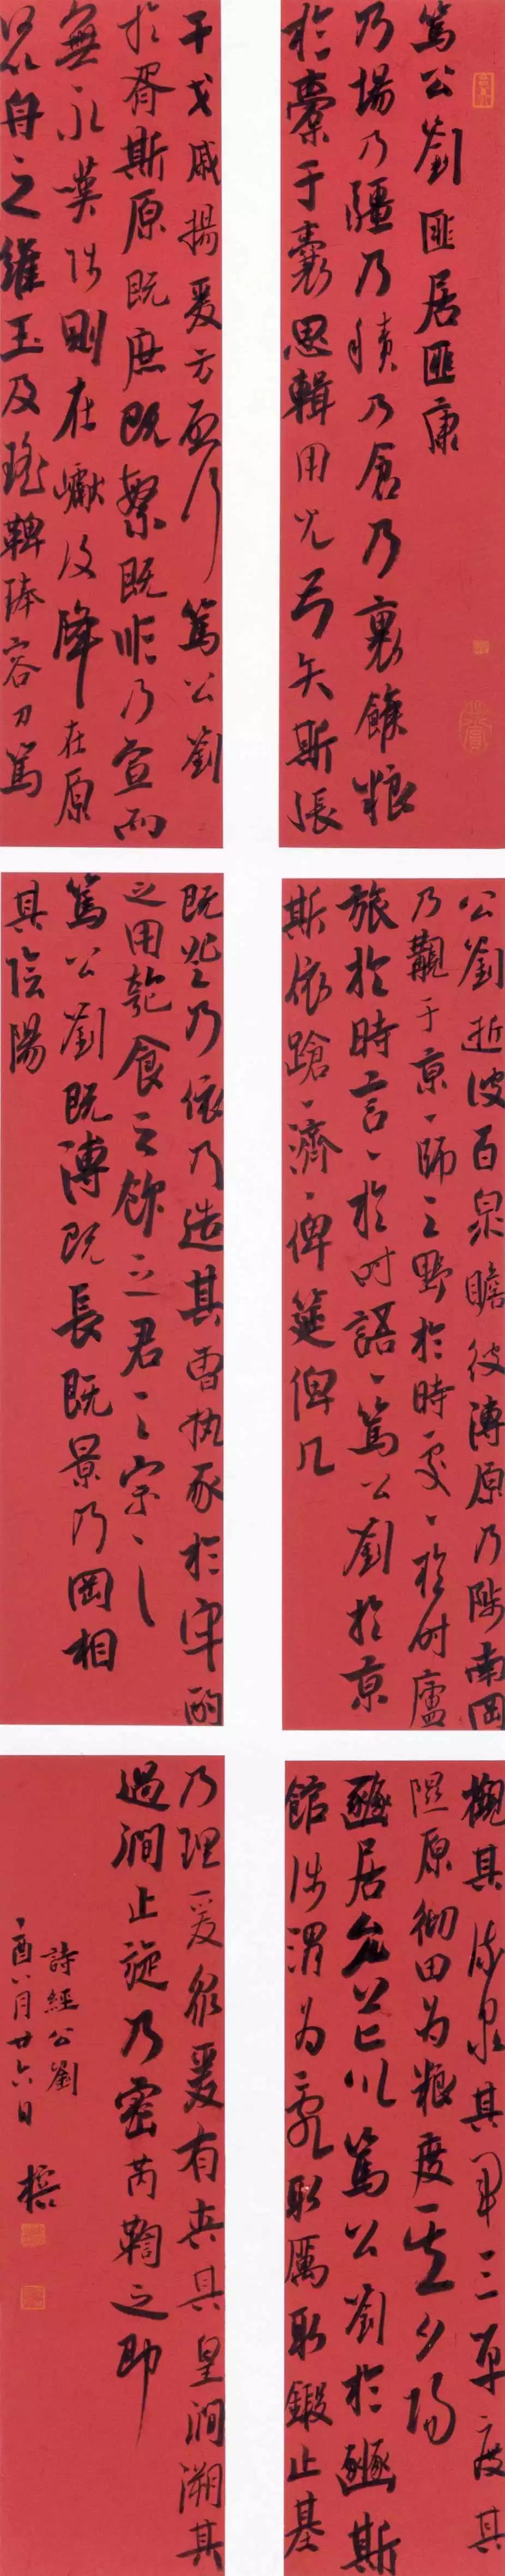 篤公劉匪居匪康
乃場乃疆乃積乃倉乃裹餱粮
於橐于囊思輯用光弓矢斯張
干戈戚揚爰方啟行篤公劉
於胥斯原既庶既繁既順乃宣而
無永嘆陟則在巘復降在原
何以舟之維玉及瑤鞞琫容刀篤
公劉逝彼百泉瞻彼溥原乃陟南岡
乃覯于京、師之野於時處、於时廬
旅於時言、於时語、篤公劉於京
斯依蹌、濟、俾筵俾几
既登乃依乃造其曹执豕於牢酌
之用匏食之飲之君、之宗、之
篤公劉既溥既長既景乃岡相
其陰陽
觀其流泉其軍三單度其
隰原彻田为粮度其夕陽
豳居允荒篤公劉於豳斯
館涉渭为亂取厲取鍛止基
乃理爰众爰有夾其皇澗溯其
過澗止旅乃密芮鞫之即
詩經公劉
酉八月廿六日